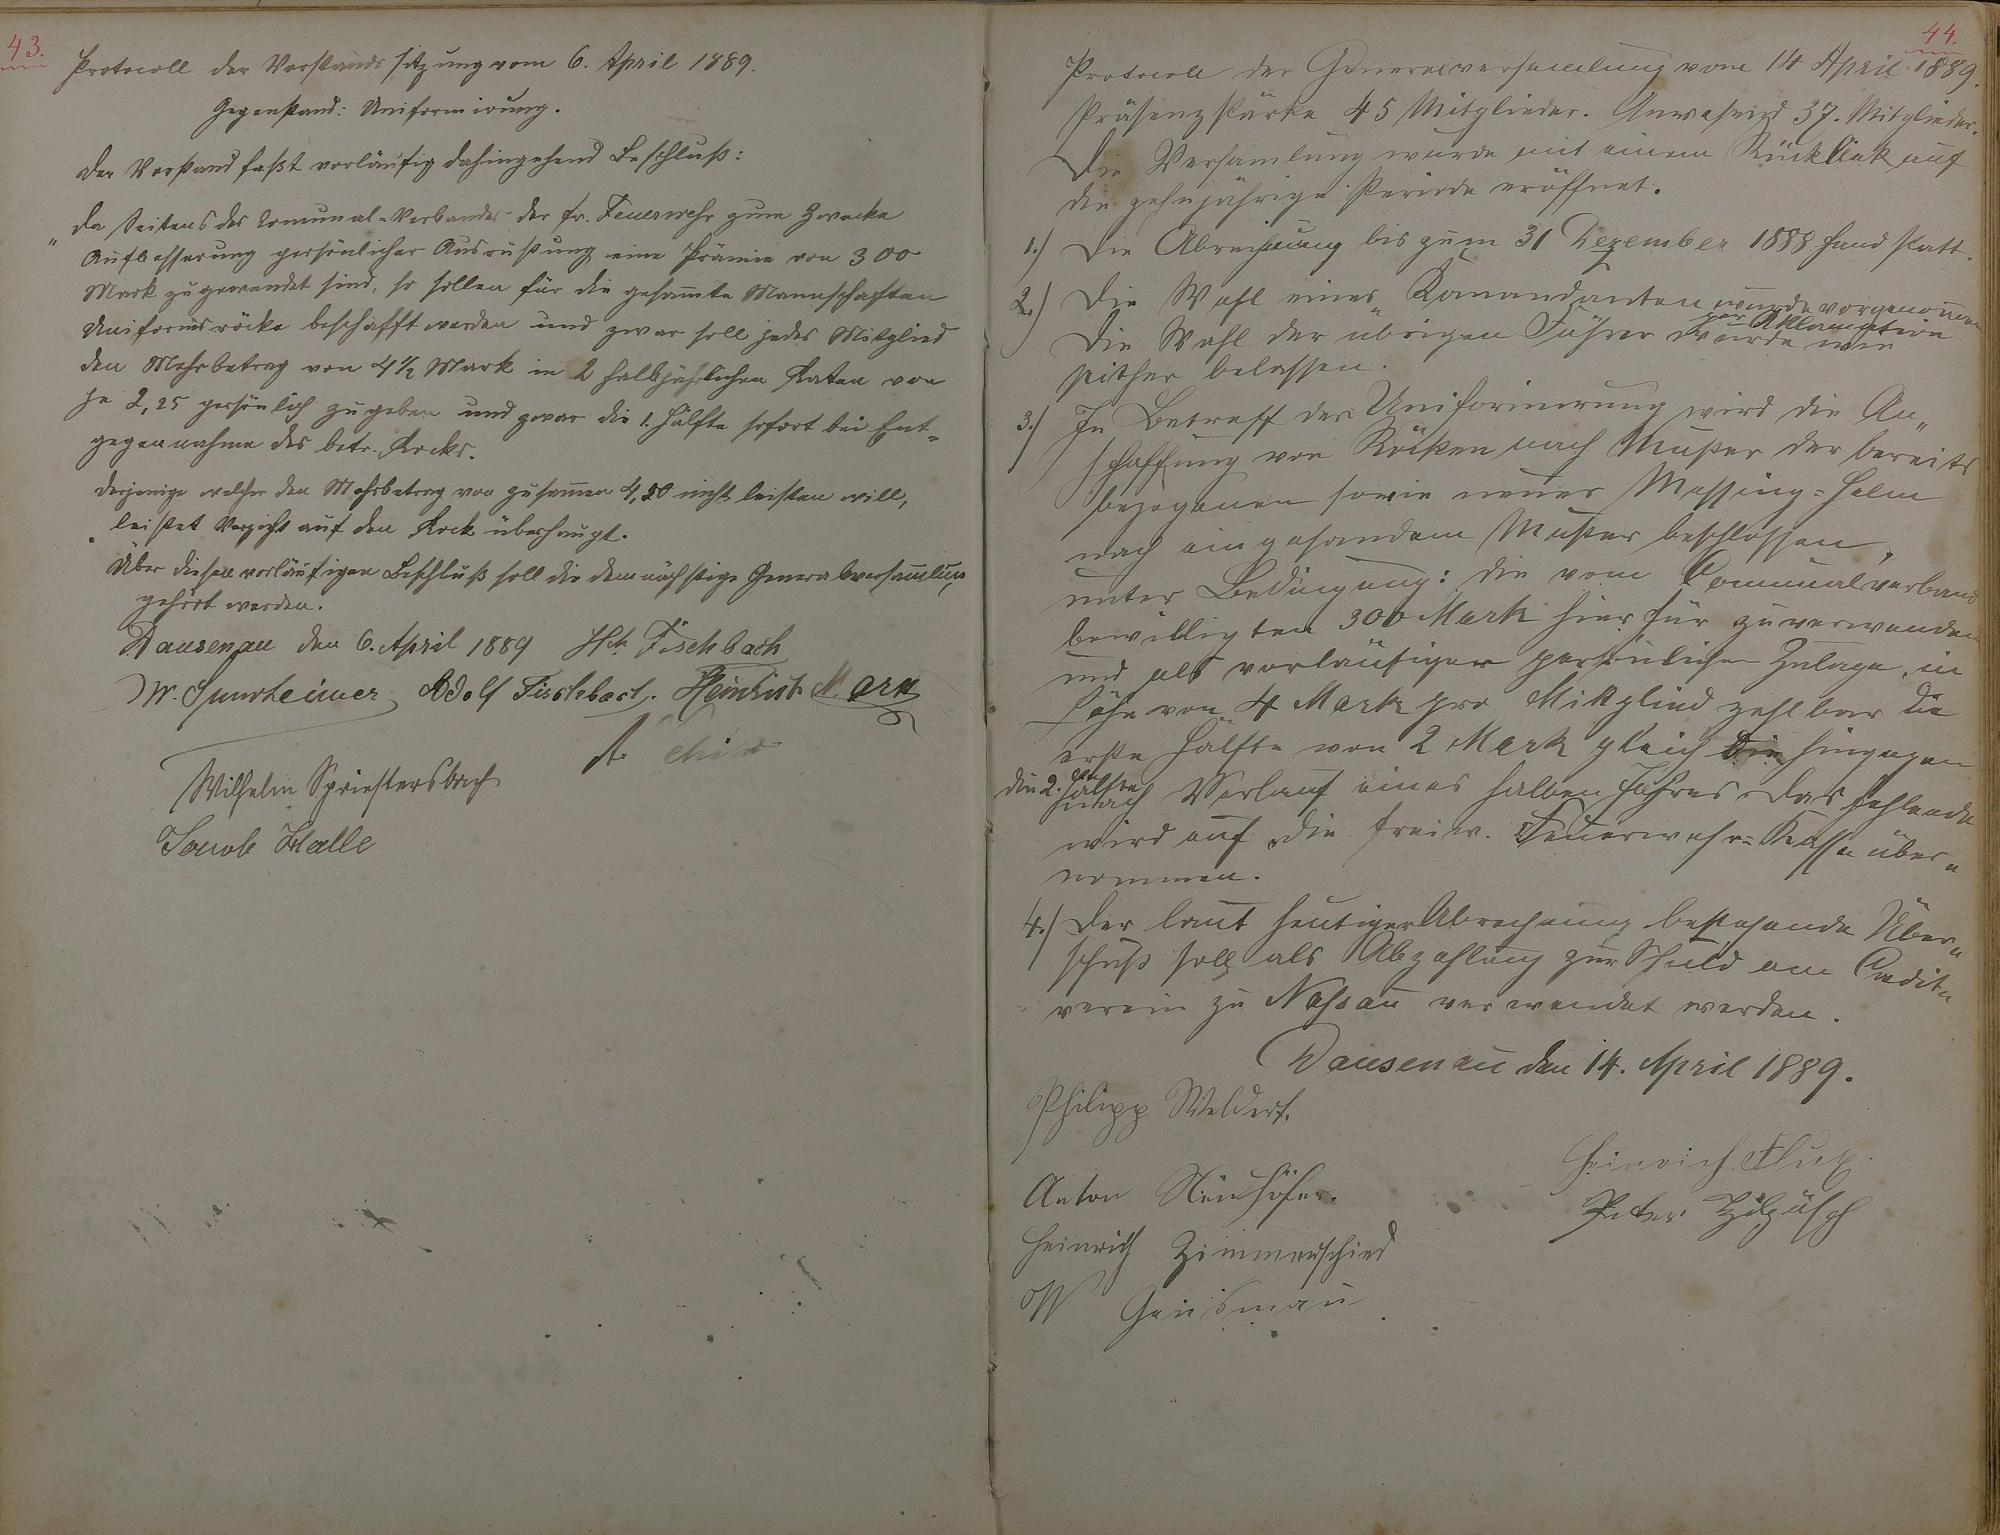 43.
Protocoll der Vorstands sitzung vom 6. April 1889.
Gegenstand: Uniformirung.
Der Vorstand faßt vorläufig dahingehend Beschluß:
„ Da Seitens des Comunal-Verbandes der fr. Feuerwehr zum Zwecke
Aufbesserung persönlicher Ausrüstung eine Prämie von 300
Mark zugewendet sind, so sollen für die gesam̄te Mannschaften
Uniformsröcke beschafft werden und zwar soll jedes Mitglied
den Mehrbetrag von 4 1/2 Mark in 2 halbjährlichen Raten von
je 2,25 persönlich zugeben und zwar die 1. Hälfte sofort bei Ent=
gegennahme des betr. Rockes.
Derjenige welcher den Mehrbetrag von zusam̄en 4,50 nicht leisten will,
leistet Verzicht auf den Rock überhaupt.
Über diesen vorläufigen Beschluß soll die demnächstige Generalversam̄lung
gehört werden.
Dausenau den 6. April 1889 Hch. Fischbach
W. Spurheimer Adolf Fischbach. Heinrich Mark
A.
Wilhelm Spriestersbach
Jacob Halle
44.
Protocoll der Generalversamlung vom 14 April 1889.
Präsenzstärke 45 Mitglieder. Anwesend 37. Mitglieder.
Die Versamlung wurde mit einem Rückblick auf
die zehnjährige Periode eröffnet.
1.) Die Abrechnung bis zum 31 Dezember 1888 fand statt.
2.) Die Wahl eines Kom̄andanten wurde vorgenom̄en
per Aklamation
Die Wahl der übrigen Führer wurde wie
seither belassen.
3.) In Betreff der Uniformirung wird die An„
schaffung von Röcken nach Muster der bereits
bezogenen sowie neuer Messing=Helm
nach eingesandem Muster beschlossen,
unter Bedingung: die vom Communalverband
bewilligten 300 Mark hierfür zu verwenden
und als vorläufiger persönlicher Zulage, in
Höhe von 4 Mark pro Mitglied zahlbar die
erste Hälfte von 2 Mark gleich hingegen
die 2. Hälfte
nach Verlauf eines halben Jahres das fehlende
wird auf die freiw. Feuerwehr=Kasse über„
nommen.
4.) Der laut heutiger Abrechnung bestehende Über„
schuß soll als Abzahlung zur Schuld am Credit„
verein zu Nassau verwendet werden.
Dausenau den 14. April 1889.
Philipp Weldert.
Heinrich
Anton Neuhöfer.
Peter
Heinrich Zimmerschied
W